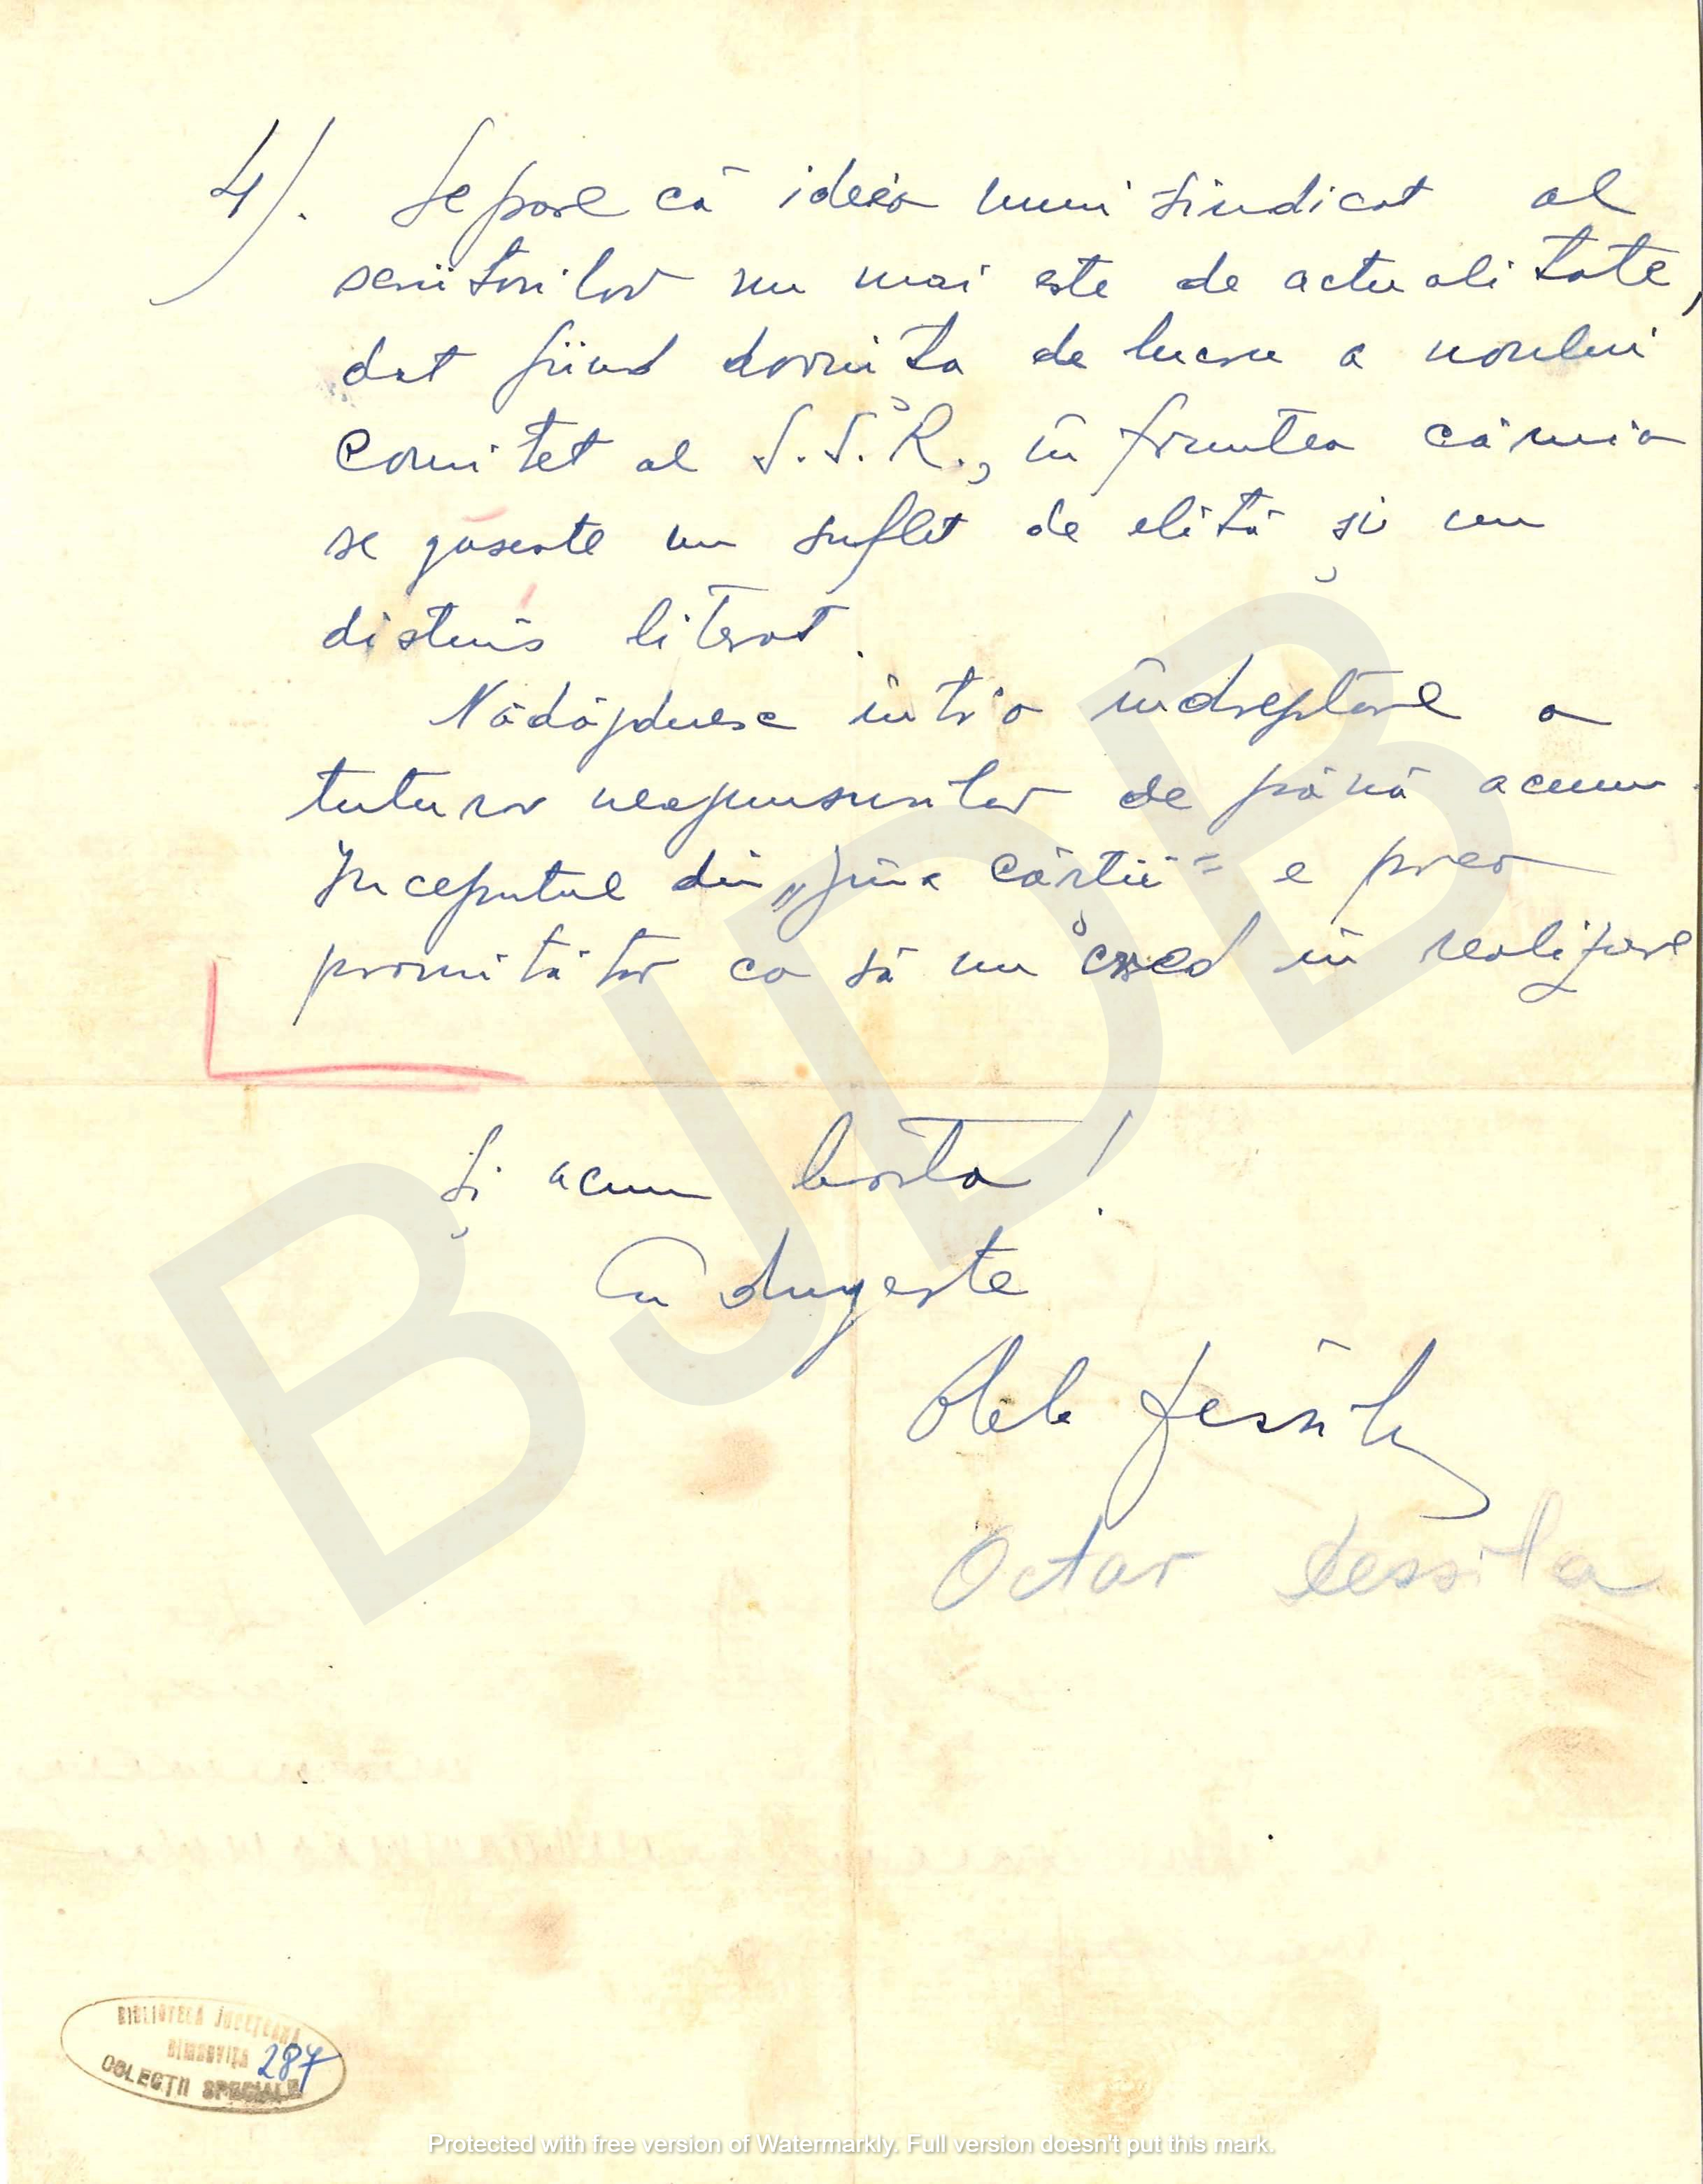 4). Se pare că ideia unui sindicat al
scriitorilor nu mai este de actualitate,
dat fiind dorința de lucru a noului
Comitet al S.S.R., în fruntea căruia
se găsește un suflet de elită și un
distins literat.
Nădăjduesc într'o îndreptare a
tuturor neajunsurilor de până acum.
Începutul din „ cărții" e prea
promițător ca să nu cred în realizare
Și acum basta!
Cu dragoste
Octav Dessila
BIBLIOTECA JUDEȚEANĂ
DÎMBOVIȚA 287
COLECȚII SPECIALE
BJDB
Protected with free version of Watermarkly. Full version doesn't put this mark.